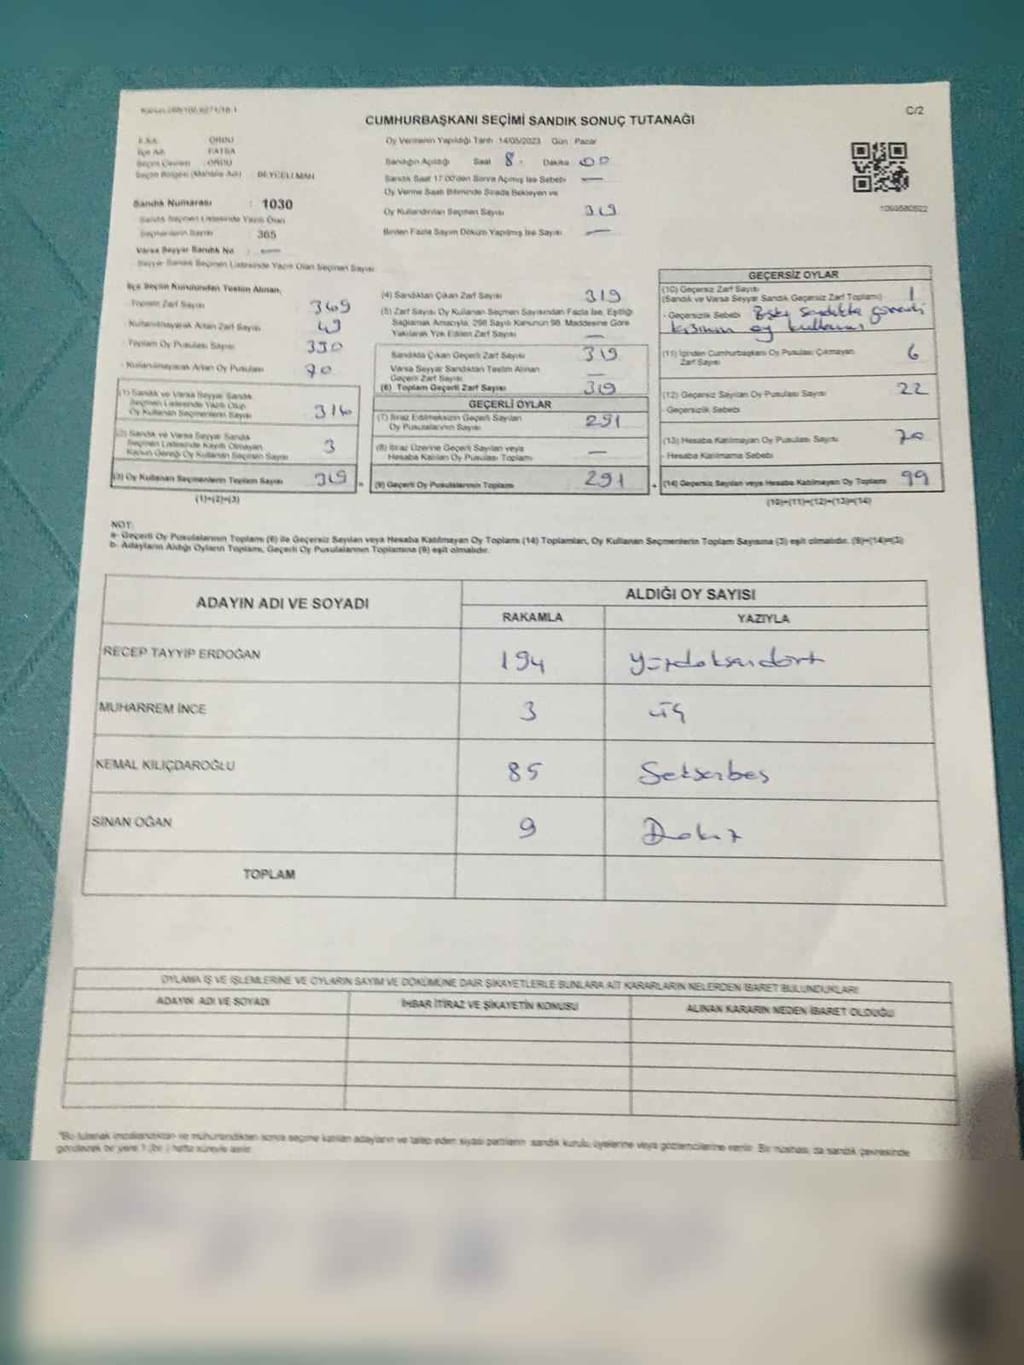 C/2
CUMHURBAŞKANI SEÇİMİ SANDIK SONUÇ TUTANAĞI
ORDU
İlçe Adı FATSA
Seçim Çevresi : ORDU
Seçim Bölgesi (Mahalle Adı) : BEYCELİ MAH
Sandık Numarası : 1030
Sandık Seçmen Listesinde Yazılı Olan
Seçmenlerin Sayısı 365
Varsa Seyyar Sandık No : —
Seyyar Sandık Seçmen Listesinde Yazılı Olan Seçmen Sayısı
Oy Vermenin Yapıldığı Tarih 14/05/2023 Gün : Pazar
Sandığın Açıldığı Saat 8 : Dakika 00
Sandık Saat 17:00'den Sonra Açılmış İse Sebebi —
Oy Verme Saati Bitiminde Sırada Bekleyen ve
Oy Kullandırılan Seçmen Sayısı 319
Birden Fazla Sayım Döküm Yapılmış İse Sayısı —
İlçe Seçim Kurulundan Teslim Alınan;
Toplam Zarf Sayısı 369
Kullanılmayarak Artan Zarf Sayısı 49
Toplam Oy Pusulası Sayısı 390
Kullanılmayarak Artan Oy Pusulası 70
(1) Sandık ve Varsa Seyyar Sandık
Seçmen Listesinde Yazılı Olup
Oy Kullanan Seçmenlerin Sayısı 316
(2) Sandık ve Varsa Seyyar Sandık
Seçmen Listesinde Kayıtlı Olmayan
Kanun Gereği Oy Kullanan Seçmenin Sayısı 3
(3) Oy Kullanan Seçmenlerin Toplam Sayısı 319
(1)+(2)=(3)
(4) Sandıktan Çıkan Zarf Sayısı 319
(5) Zarf Sayısı Oy Kullanan Seçmen Sayısından Fazla İse, Eşitliği
Sağlamak Amacıyla, 298 Sayılı Kanunun 98. Maddesine Göre
Yakılarak Yok Edilen Zarf Sayısı —
Sandıkta Çıkan Geçerli Zarf Sayısı 319
Varsa Seyyar Sandıktan Teslim Alınan
Geçerli Zarf Sayısı —
(6) Toplam Geçerli Zarf Sayısı 319
GEÇERLİ OYLAR
(7) İtiraz Edilmeksizin Geçerli Sayılan
Oy Pusulalarının Sayısı 291
(8) İtiraz Üzerine Geçerli Sayılan veya
Hesaba Katılan Oy Pusulası Toplamı —
(9) Geçerli Oy Pusulalarının Toplamı 291
GEÇERSİZ OYLAR
(10) Geçersiz Zarf Sayısı
(Sandık ve Varsa Seyyar Sandık Geçersiz Zarf Toplamı) 1
- Geçersizlik Sebebi sandıkta görevli
oy
(11) İçinden Cumhurbaşkanı Oy Pusulası Çıkmayan
Zarf Sayısı 6
(12) Geçersiz Sayılan Oy Pusulası Sayısı 22
- Geçersizlik Sebebi
(13) Hesaba Katılmayan Oy Pusulası Sayısı 70
- Hesaba Katılmama Sebebi
(14) Geçersiz Sayılan veya Hesaba Katılmayan Oy Toplamı 99
(10)+(11)+(12)+(13)=(14)
NOT:
a- Geçerli Oy Pusulalarının Toplamı (9) ile Geçersiz Sayılan veya Hesaba Katılmayan Oy Toplamı (14) Toplamları, Oy Kullanan Seçmenlerin Toplam Sayısına (3) eşit olmalıdır. (9)+(14)=(3)
b- Adayların Aldığı Oyların Toplamı, Geçerli Oy Pusulalarının Toplamına (9) eşit olmalıdır.
ADAYIN ADI VE SOYADI ALDIĞI OY SAYISI
RAKAMLA YAZIYLA
RECEP TAYYİP ERDOĞAN 194 yüzdoksandört
MUHARREM İNCE 3 üç
KEMAL KILIÇDAROĞLU 85 Seksenbeş
SİNAN OĞAN 9 Dokuz
TOPLAM
OYLAMA İŞ VE İŞLEMLERİNE VE OYLARIN SAYIM VE DÖKÜMÜNE DAİR ŞİKAYETLERLE BUNLARA AİT KARARLARIN NELERDEN İBARET BULUNDUKLARI
ADAYIN ADI VE SOYADI İHBAR İTİRAZ VE ŞİKAYETİN KONUSU ALINAN KARARIN NEDEN İBARET OLDUĞU
"Bu tutanak imzalandıktan ve mühürlendikten sonra seçime katılan adayların ve talep eden siyasi partilerin sandık kurulu üyelerine veya gözlemcilerine verilir. Bir nüshası da sandık çevresinde
görülecek bir yere 1 (bir) hafta süreyle asılır.